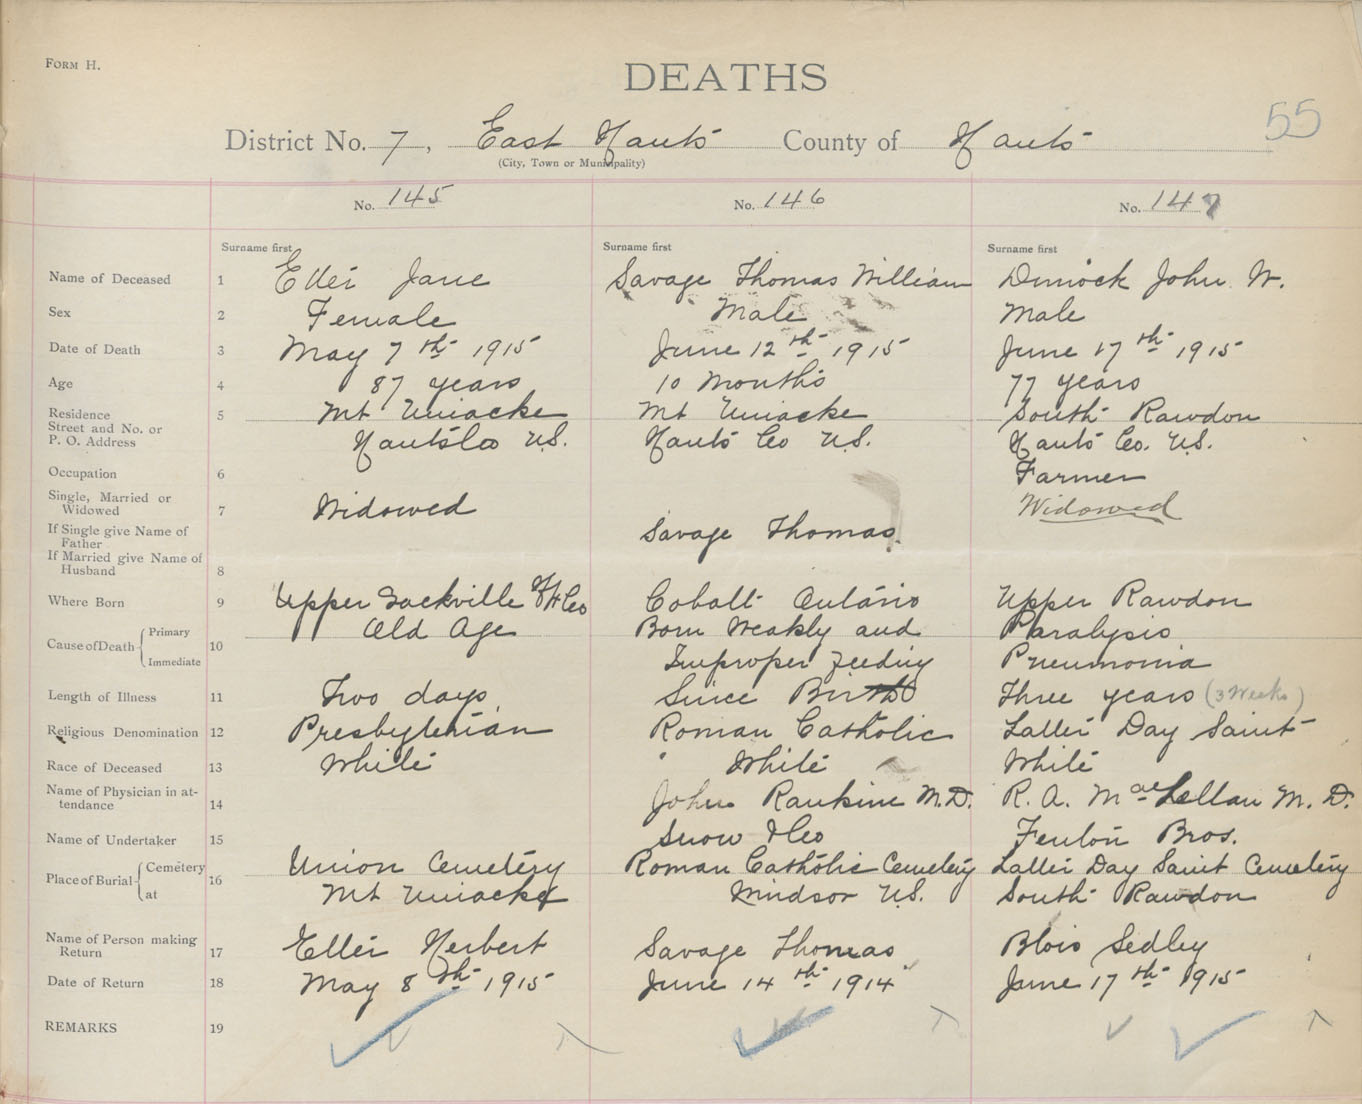 FORM H.
DEATHS
55
District No. 7, East Hants County of Hants
(City, Town or Municipality)
No. 145 No. 146 No. 147
Surname first Surname first Surname first
Name of Deceased 1 Etter Jane Savage Thomas William Dimock John W.
Sex 2 Female Male Male
Date of Death 3 May 7th 1915 June 12th 1915 June 17th 1915
Age 4 87 years 10 Months 77 years
Residence 5 Mt Uniacke Mt Uniacke South Rawdon
Street and No. or
P. O. Address Hants Co N.S. Hants Co N.S. Hants Co. N.S.
Occupation 6 Farmer
Single, Married or
Widowed 7 Widowed Widowed
If Single give Name of
Father Savage Thomas
If Married give Name of
Husband 8
Where Born 9 Upper Sackville Hfx Co Cobalt Ontario Upper Rawdon
Cause of Death Primary 10 Old Age Born Weakly and Paralysis
Immediate Improper Feeding Pneumonia
Length of Illness 11 Two days Since Birth Three years (3 Weeks)
Religious Denomination 12 Presbyterian Roman Catholic Latter Day Saint
Race of Deceased 13 White White White
Name of Physician in at-
tendance 14 John Rankine M.D. R. A. MacLellan M. D.
Name of Undertaker 15 Snow & Co Fenton Bros.
Place of Burial Cemetery 16 Union Cemetery Roman Catholic Cemetery Latter Day Saint Cemetery
at Mt Uniacke Windsor N.S. South Rawdon
Name of Person making
Return 17 Etter Herbert Savage Thomas Blois Sedley
Date of Return 18 May 8th 1915 June 14th 1914 June 17th 1915
REMARKS 19